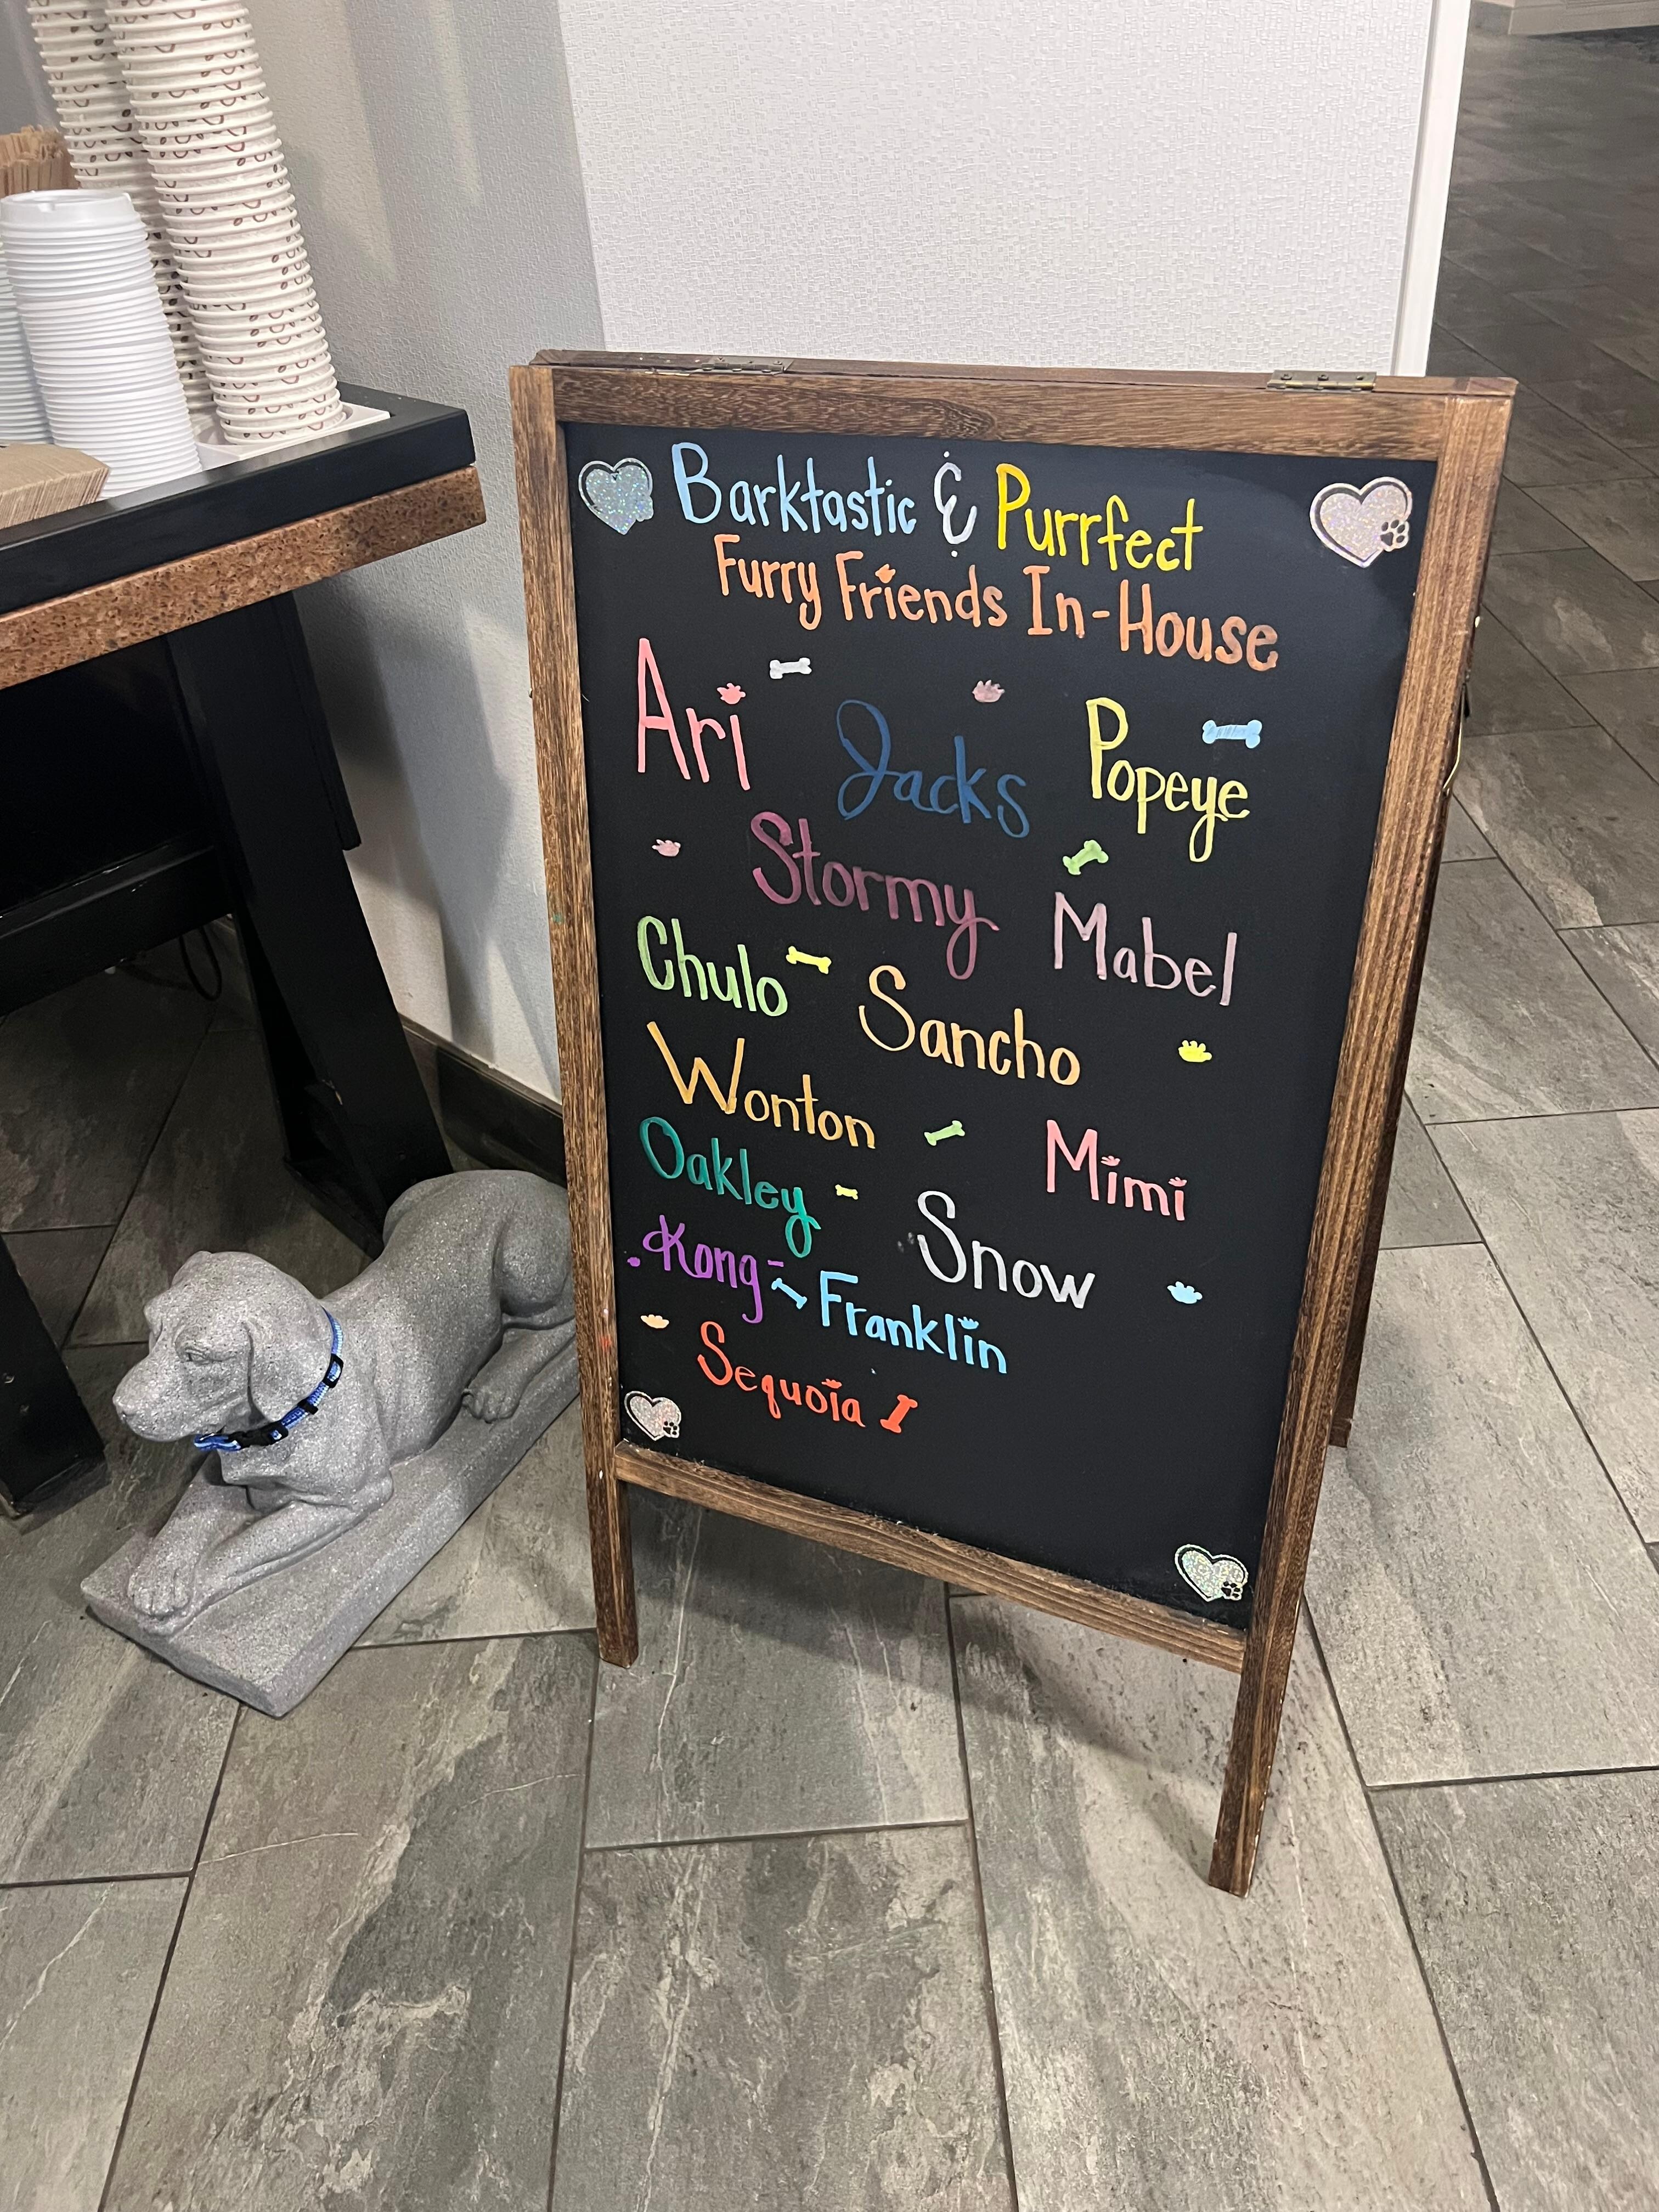 Barktastic & Purrfect
Furry Friends In-House
Ari Jacks Popeye
Stormy Mabel
Chulo Sancho
Wonton Mimi
Oakley Snow
Kong Franklin
Sequoia